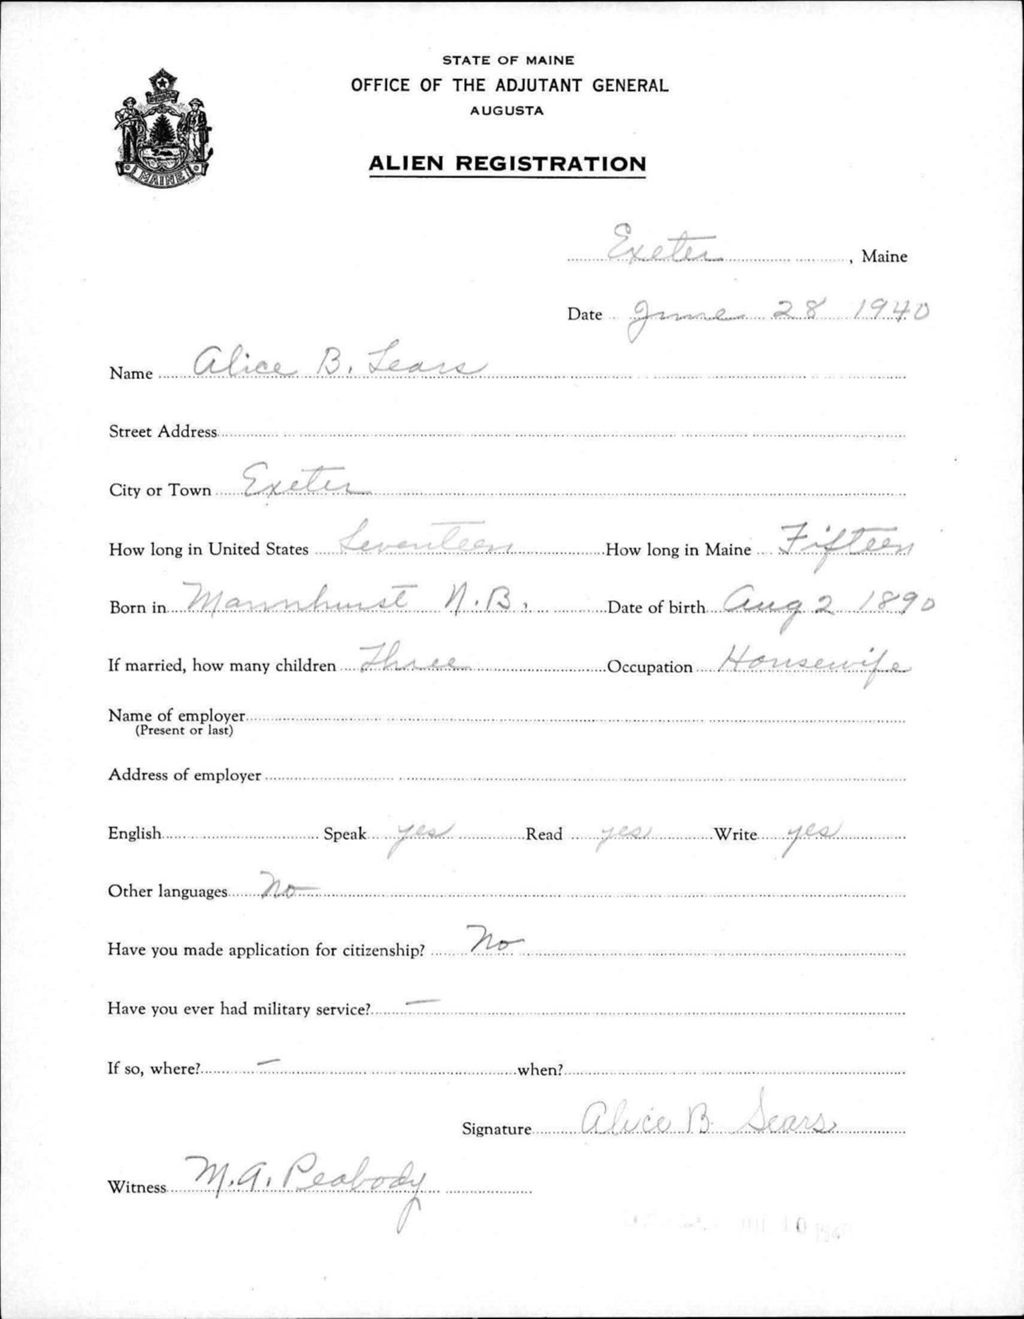 STATE OF MAINE
OFFICE OF THE ADJUTANT GENERAL
AUGUSTA
ALIEN REGISTRATION
MAINE
Exeter, Maine
Date June 28 1940
Name Alice B. Sears
Street Address
City or Town Exeter
How long in United States Seventeen How long in Maine Fifteen
Born in Mannhurst N.B. Date of birth Aug 2 1890
If married, how many children Three Occupation Housewife
Name of employer
(Present or last)
Address of employer
English Speak yes Read yes Write yes
Other languages No
Have you made application for citizenship? No
Have you ever had military service? —
If so, where? — when?
Signature Alice B Sears
Witness M. A. Peabody